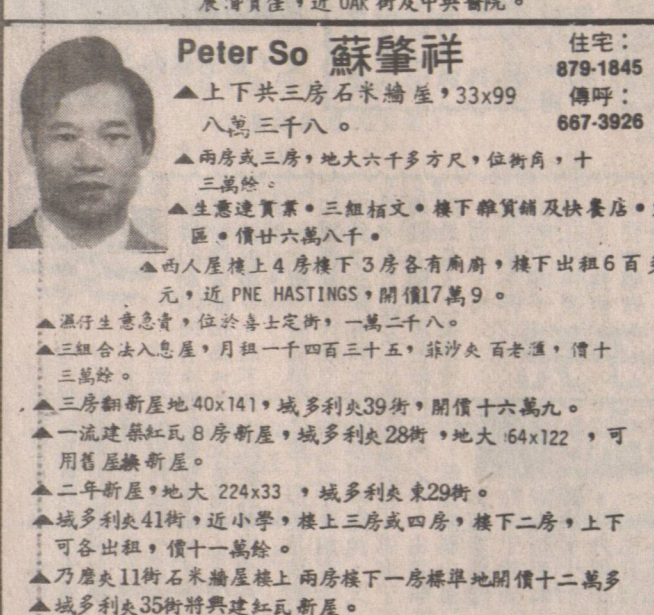 近 OAK 街及中央醫院。
Peter So 蘇肇祥
住宅：
879-1845
傳呼：
667-3926
▲上下共三房石米牆屋，33x99
八萬三千八。
▲兩房或三房，地大六千多方尺，位街角，十
三萬餘。
▲生意連實業。三組栢文。樓下雜貨鋪及快餐店。
區。價廿六萬八千。
▲西人屋樓上4房樓下3房各有廁廚，樓下出租6百
元，近 PNE HASTINGS，開價17萬9。
▲濕仔生意急賣，位於喜士定街，一萬二千八。
▲三組合法入息屋，月租一千四百三十五，菲沙夾百老滙，價十
三萬餘。
▲三房翻新屋地40x141，域多利夾39街，開價十六萬九。
▲一流建築紅瓦8房新屋，域多利夾28街，地大64x122，可
用舊屋換新屋。
▲二年新屋，地大 224x33，域多利夾東29街。
▲域多利夾41街，近小學，樓上三房或四房，樓下二房，上下
可各出租，價十一萬餘。
▲乃磨夾11街石米牆屋樓上兩房樓下一房標準地開價十二萬多
▲域多利夾35街將興建紅瓦新屋。